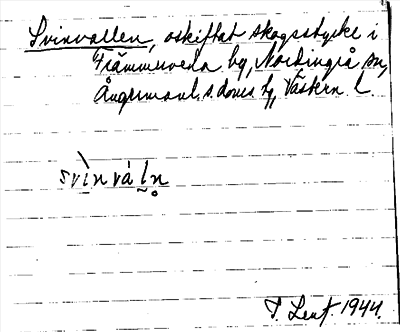 Svinvallen, oskiftat skogsstycke i
Främmerveda by, Nordingrå sn,
Ångermanl. s. doms tg, Västern. l.
svìnvál̥n̥
1944.